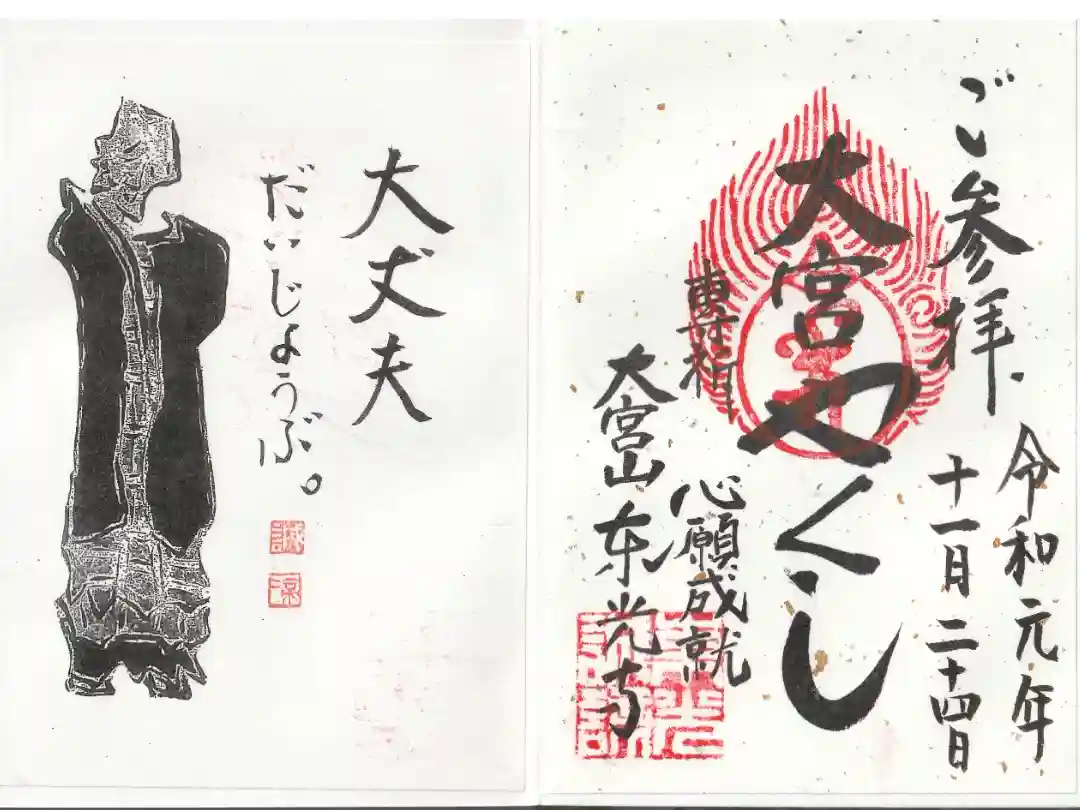 ご参拝
令和元年
十一月二十四日
大宮やくし
心願成就
大宮山东光寺
大丈夫
だいじょうぶ。